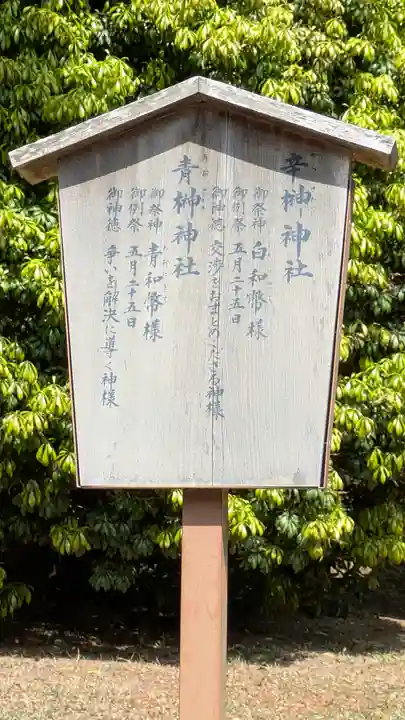 辛榊神社
御祭神 白和幣様
御例祭 五月二十五日
御神徳 交渉をおまとめくださる神様
青榊神社
御祭神 青和幣様
御例祭 五月二十五日
御神徳 争い事解決に導く神様